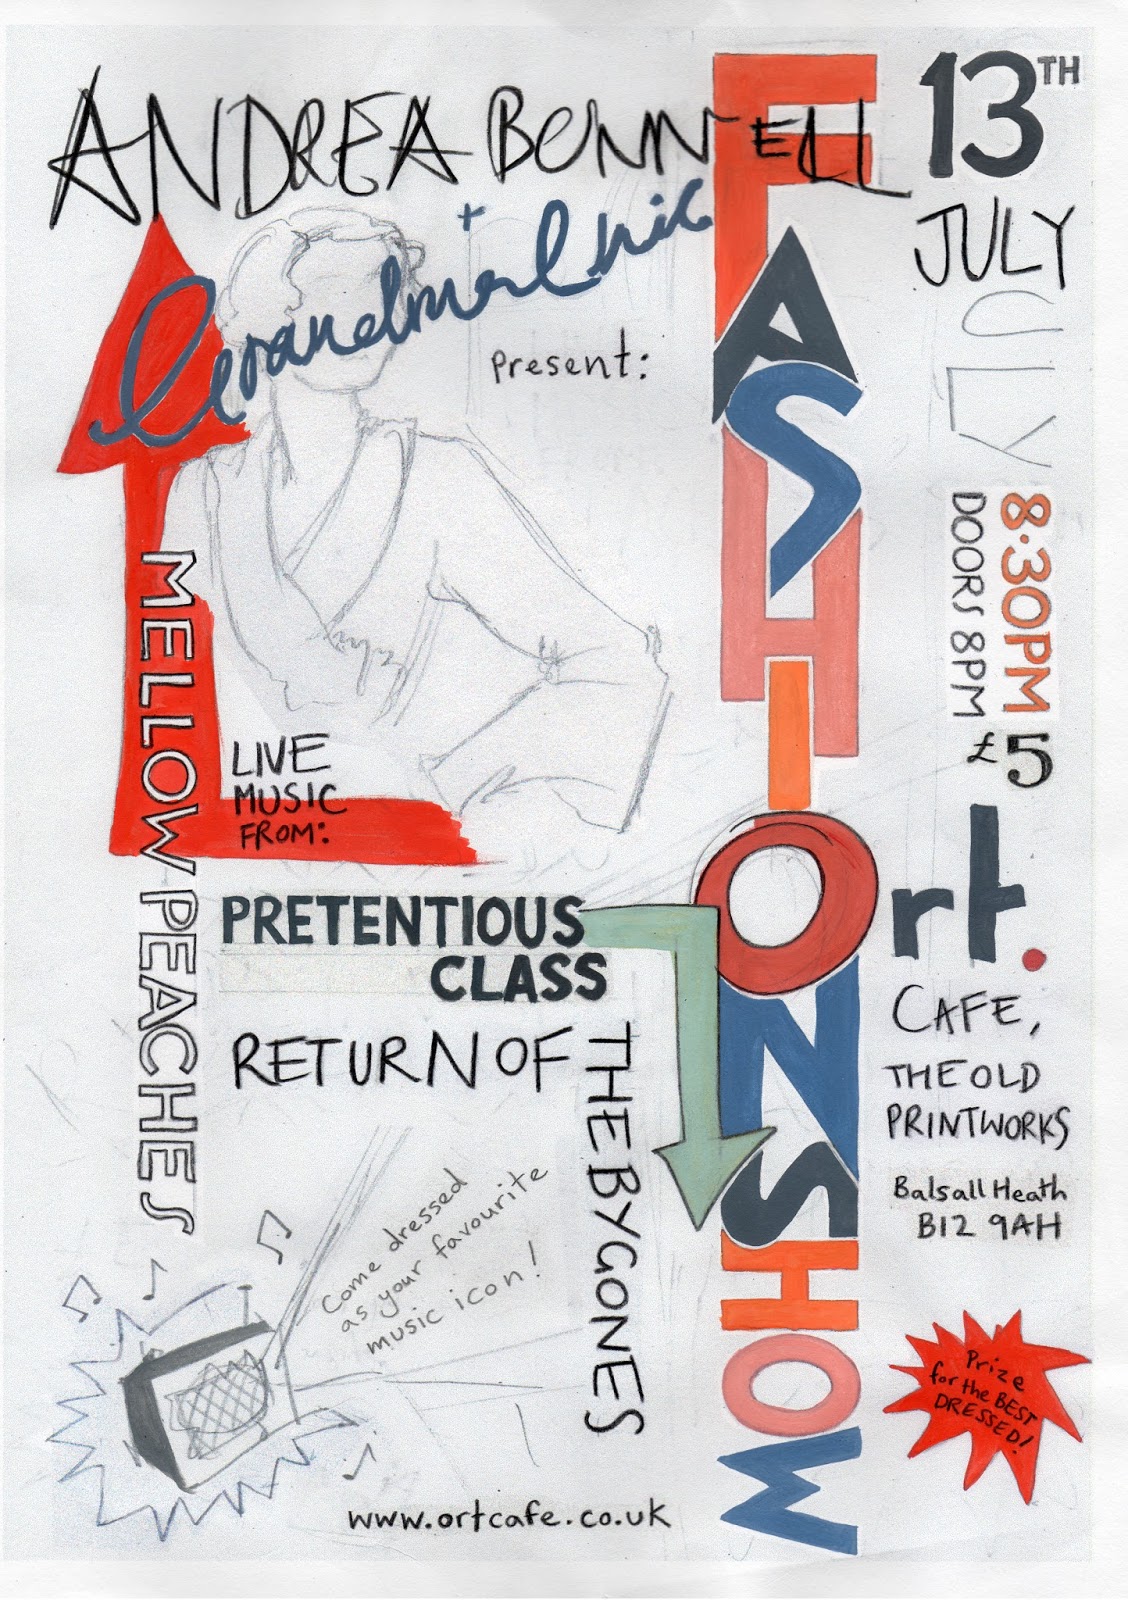 ANDREA BONNELL
+ Grandma Chic
Present:
FASHION SHOW
13TH
JULY
JULY
8.30PM
DOORS 8PM
£5
ort.
CAFE,
THE OLD
PRINTWORKS
Balsall Heath
B12 9AH
LIVE
MUSIC
FROM:
MELLOW PEACHES
PRETENTIOUS
CLASS
RETURN OF
THE BYGONES
Come dressed
as your favourite
music icon!
Prize
for the BEST
DRESSED!
www.ortcafe.co.uk